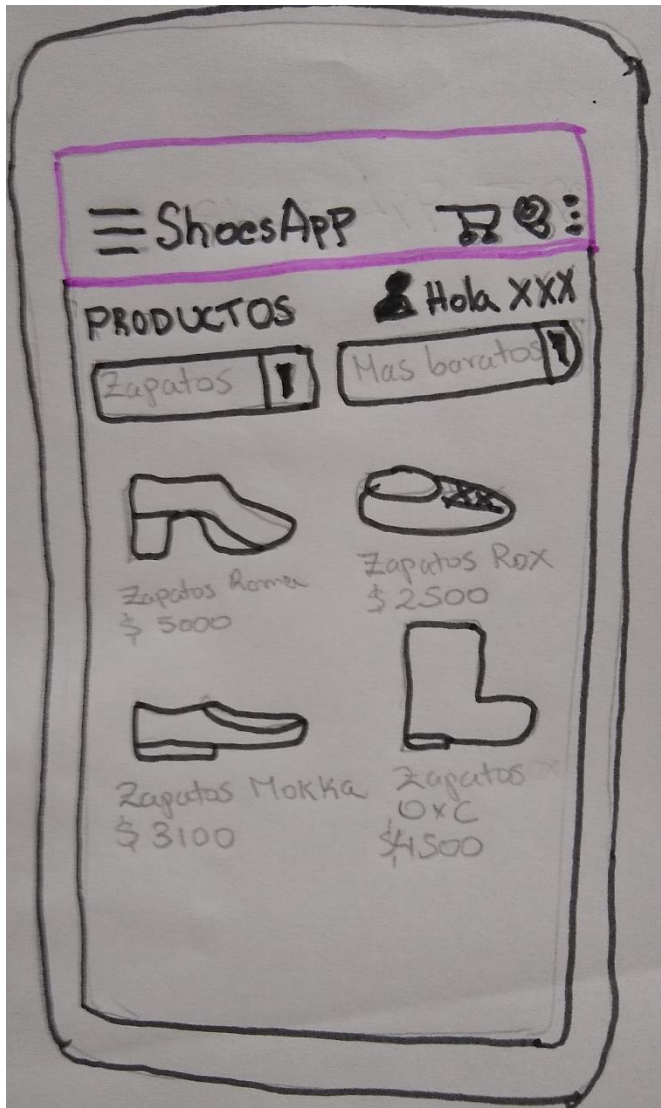 ShoesApp
PRODUCTOS
Hola XXX
Zapatos
Mas baratos
Zapatos Roma
$ 5000
Zapatos Rox
$ 2500
Zapatos Mokka
$ 3100
Zapatos
OxC
$4500